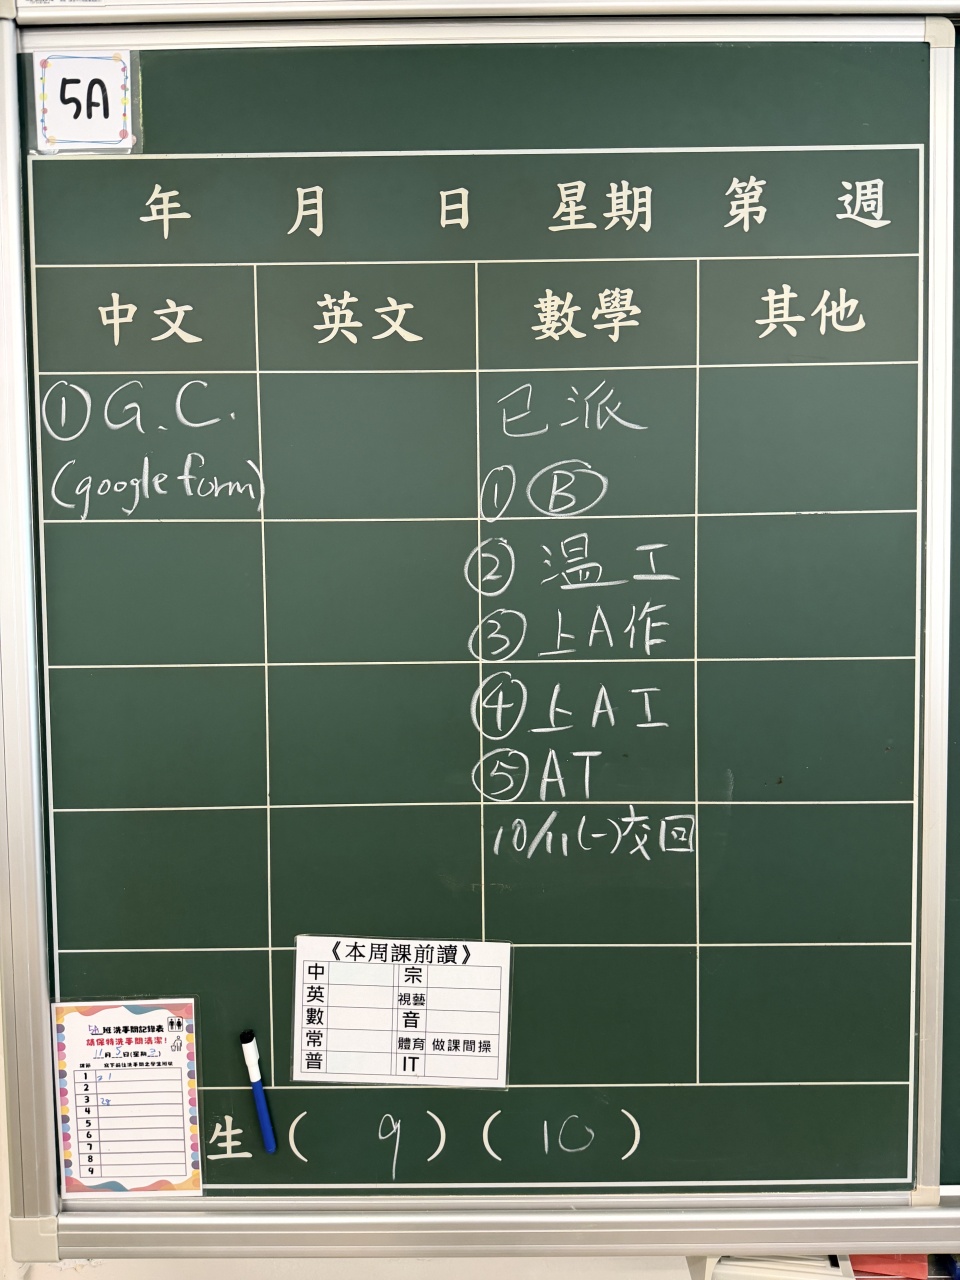 5A
年 月 日 星期 第 週
中文 英文 數學 其他
①G.C.
(google form)
已派
①Ⓑ
②溫工
③上A作
④上AI
⑤AT
10/11(一)交回
《本周課前讀》
中 宗
英 視藝
數 音
常 體育 做課間操
普 IT
5A班洗手間記錄表
請保持洗手間清潔!
11月5日(星期三)
1 21
2
3 28
4
5
6
7
8
9
生( 9 )( 10 )